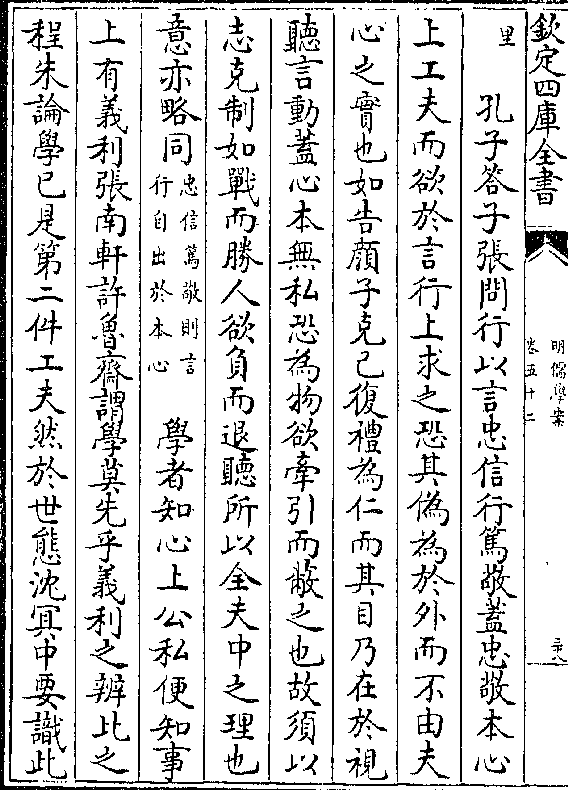 欽定四庫全書
明儒學案
卷五十二
里
孔子答子張問行以言忠信行篤敬蓋忠敬本心
上工夫而欲於言行上求之恐其偽為於外而不由夫
心之實也如告顔子克己復禮為仁而其目乃在於視
聽言動蓋心本無私恐為物欲牽引而蔽之也故須以
志克制如戰而勝人欲負而退聽所以全夫中之理也
意亦略同
忠信篤敬則言
行自出於本心
學者知心上公私便知事
上有義利張南軒許魯齋謂學莫先乎義利之辨比之
程朱論學已是第二件工夫然於世態沈冥中要識此